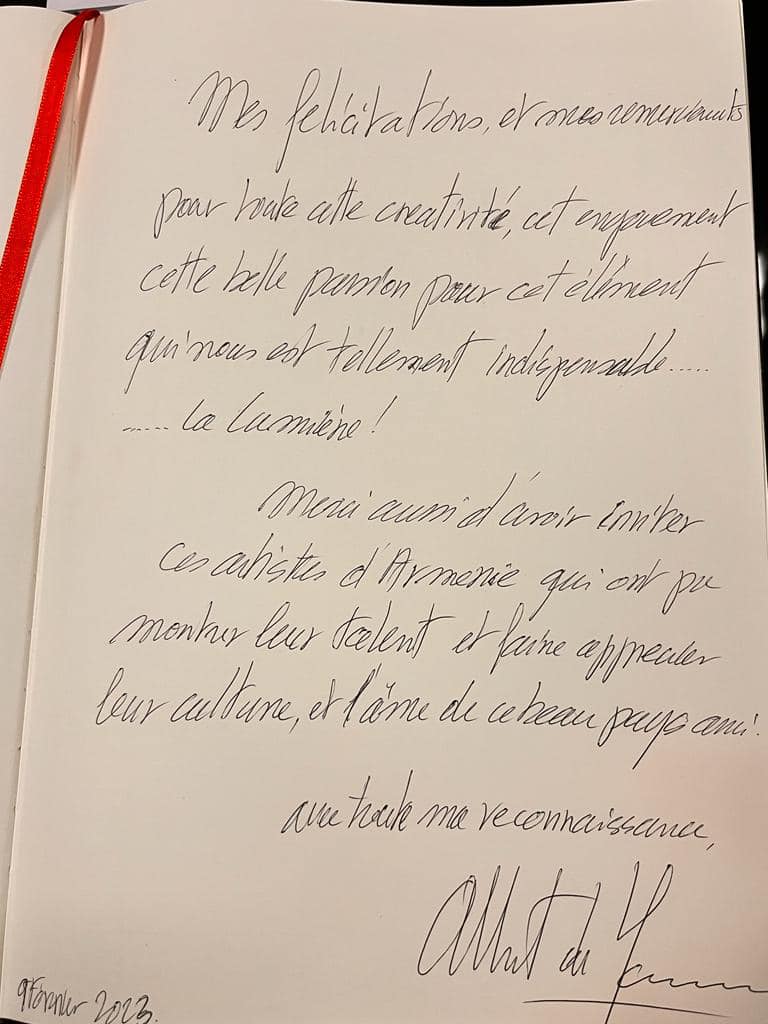 Mes félicitations, et mes remerciements
pour toute cette creativité, cet engouement
cette belle passion pour cet élément
qui nous est tellement indispensable.....
..... la lumière !
Merci aussi d'avoir inviter
ces artistes d'Armenie qui ont pu
montrer leur talent et faire apprecier
leur culture, et l'âme de ce beau pays ami.
avec toute ma reconnaissance,
Albert de
9 Février 2023.